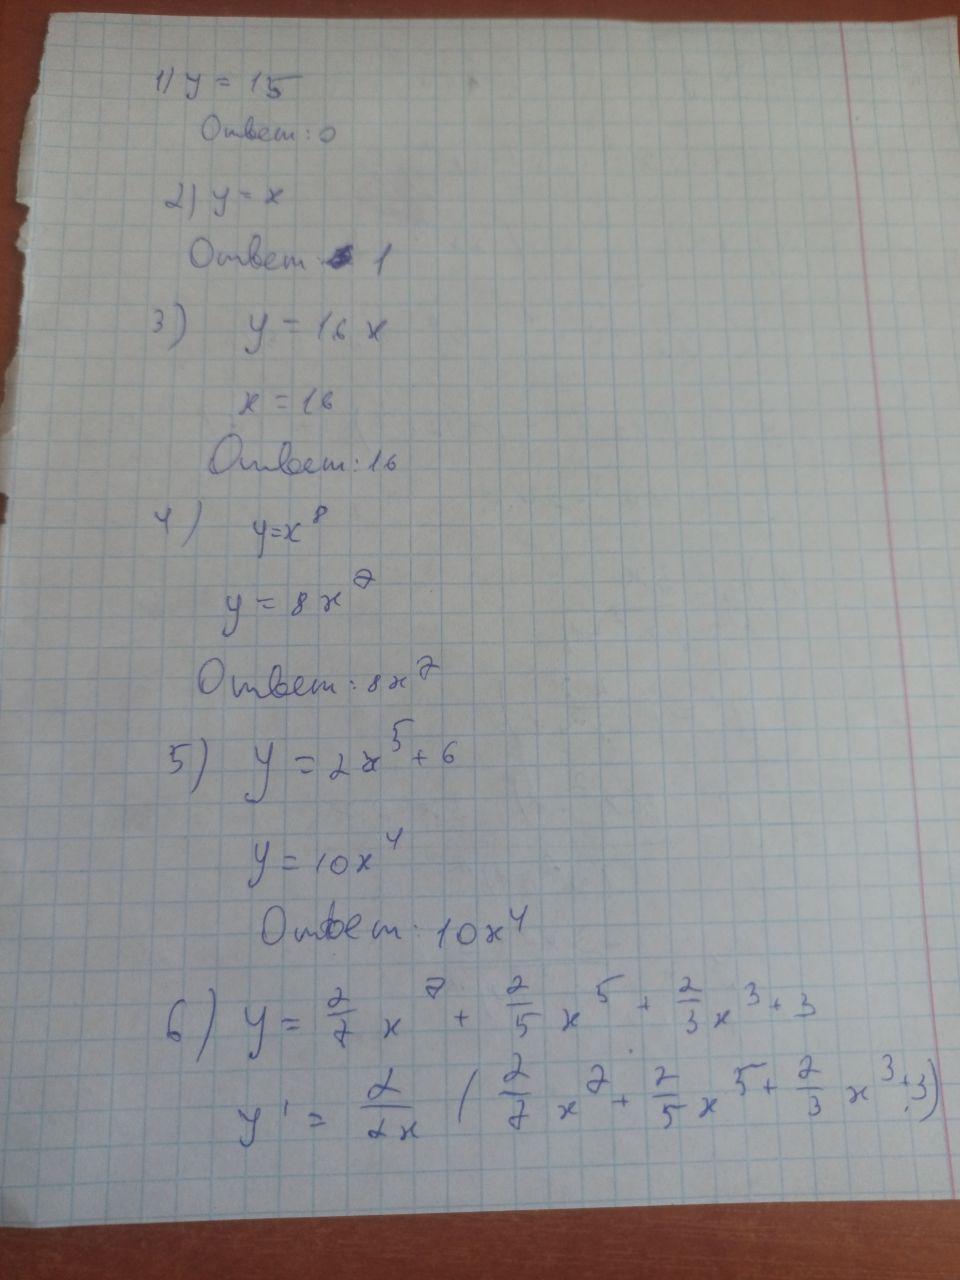 1) y = 15
Ответ: 0
2) y = x
Ответ 1
3) y = 16 x
x = 16
Ответ: 16
4) y=x⁸
y = 8x⁷
Ответ: 8x⁷
5) y = 2x⁵ + 6
y = 10x⁴
Ответ: 10x⁴
6) y = 2/7 x⁷ + 2/5 x⁵ + 2/3 x³ + 3
y' = d/dx (2/7 x⁷ + 2/5 x⁵ + 2/3 x³ + 3)